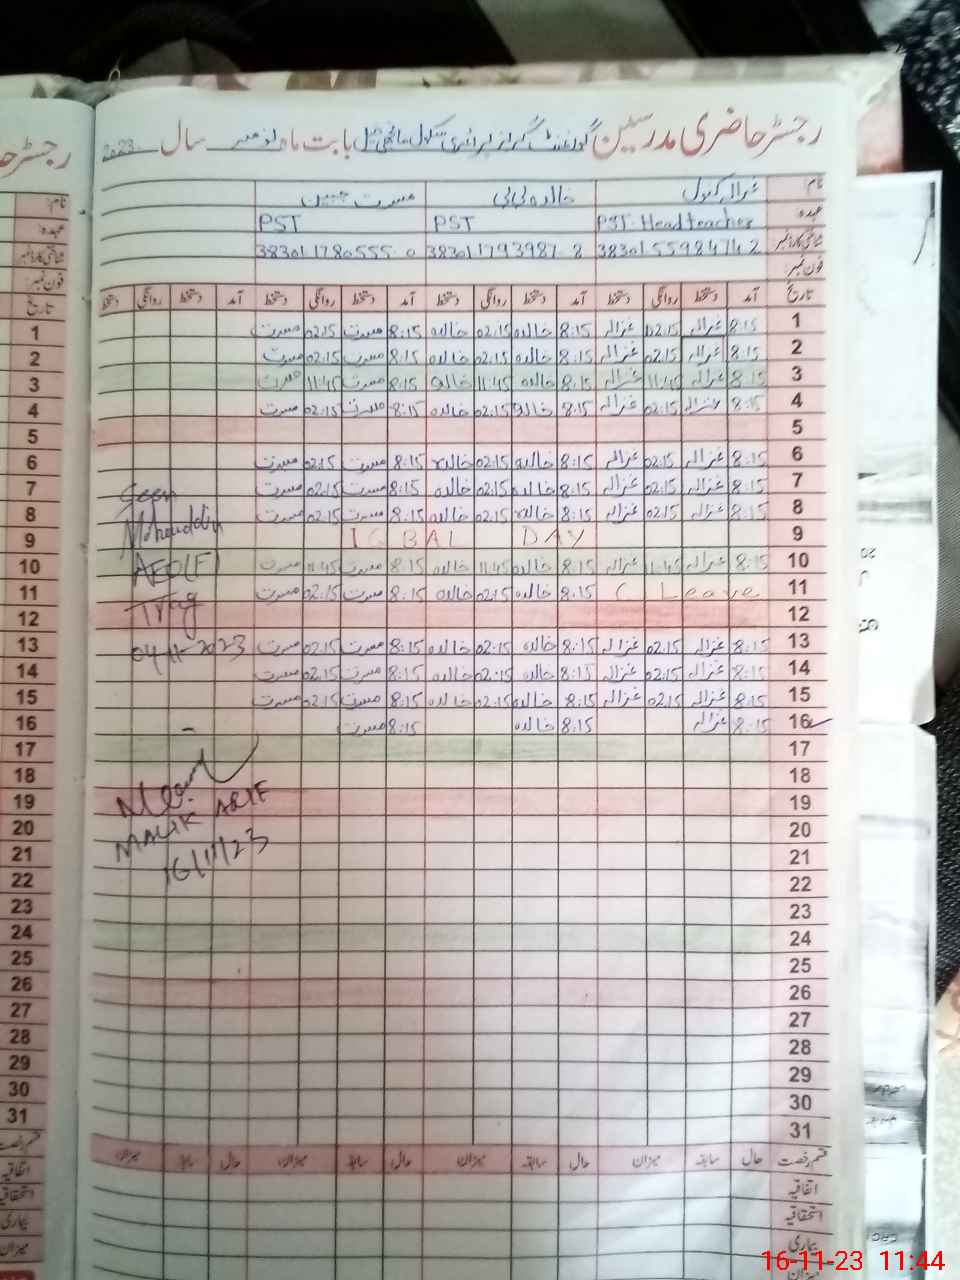 رجسٹر حاضری مدرسین گورنمنٹ گرلز پرائمری سکول بابت ماہ نومبر سال 2023
نام: غزالہ کنول خالدہ بی بی مسرت جبین
عہدہ PST. Headteacher PST PST
شناختی کارڈ نمبر 38301 5598474 2 38301 1793987 8 38301 1780555 0
فون نمبر:
تاریخ آمد دستخط روانگی دستخط آمد دستخط روانگی دستخط آمد دستخط روانگی دستخط آمد دستخط روانگی دستخط
1 8:15 غزالہ 02:15 غزالہ 8:15 خالدہ 02:15 خالدہ 8:15 مسرت 02:15 مسرت
2 8:15 غزالہ 02:15 غزالہ 8:15 خالدہ 02:15 خالدہ 8:15 مسرت 02:15 مسرت
3 8:15 غزالہ 11:45 غزالہ 8:15 خالدہ 11:45 خالدہ 8:15 مسرت 11:45 مسرت
4 8:15 غزالہ 02:15 غزالہ 8:15 خالدہ 02:15 خالدہ 8:15 مسرت 02:15 مسرت
5
6 8:15 غزالہ 02:15 غزالہ 8:15 خالدہ 02:15 خالدہ 8:15 مسرت 02:15 مسرت
7 8:15 غزالہ 02:15 غزالہ 8:15 خالدہ 02:15 خالدہ 8:15 مسرت 02:15 مسرت
8 8:15 غزالہ 02:15 غزالہ 8:15 خالدہ 02:15 خالدہ 8:15 مسرت 02:15 مسرت
9 IQBAL DAY
10 8:15 غزالہ 11:45 غزالہ 8:15 خالدہ 11:45 خالدہ 8:15 مسرت 11:45 مسرت
11 C Leave 8:15 خالدہ 02:15 خالدہ 8:15 مسرت 02:15 مسرت
12
13 8:15 غزالہ 02:15 غزالہ 8:15 خالدہ 02:15 خالدہ 8:15 مسرت 02:15 مسرت
14 8:15 غزالہ 02:15 غزالہ 8:15 خالدہ 02:15 خالدہ 8:15 مسرت 02:15 مسرت
15 8:15 غزالہ 02:15 غزالہ 8:15 خالدہ 02:15 خالدہ 8:15 مسرت 02:15 مسرت
16 8:15 غزالہ 8:15 خالدہ 8:15 مسرت
17
18
19
20
21
22
23
24
25
26
27
28
29
30
31
Seen
AEO(F)
04-11-2023
MALIK ARIF
16/11/23
قسم رخصت حال سابقہ میزان حال سابقہ میزان حال سابقہ میزان حال سابقہ میزان
اتفاقیہ
استحقاقیہ
بیماری
میزان
رجسٹر
نام:
عہدہ:
شناختی کارڈ نمبر
فون نمبر:
تاریخ
1
2
3
4
5
6
7
8
9
10
11
12
13
14
15
16
17
18
19
20
21
22
23
24
25
26
27
28
29
30
31
قسم رخصت
اتفاقیہ
استحقاقیہ
بیماری
میزان
16-11-23 11:44